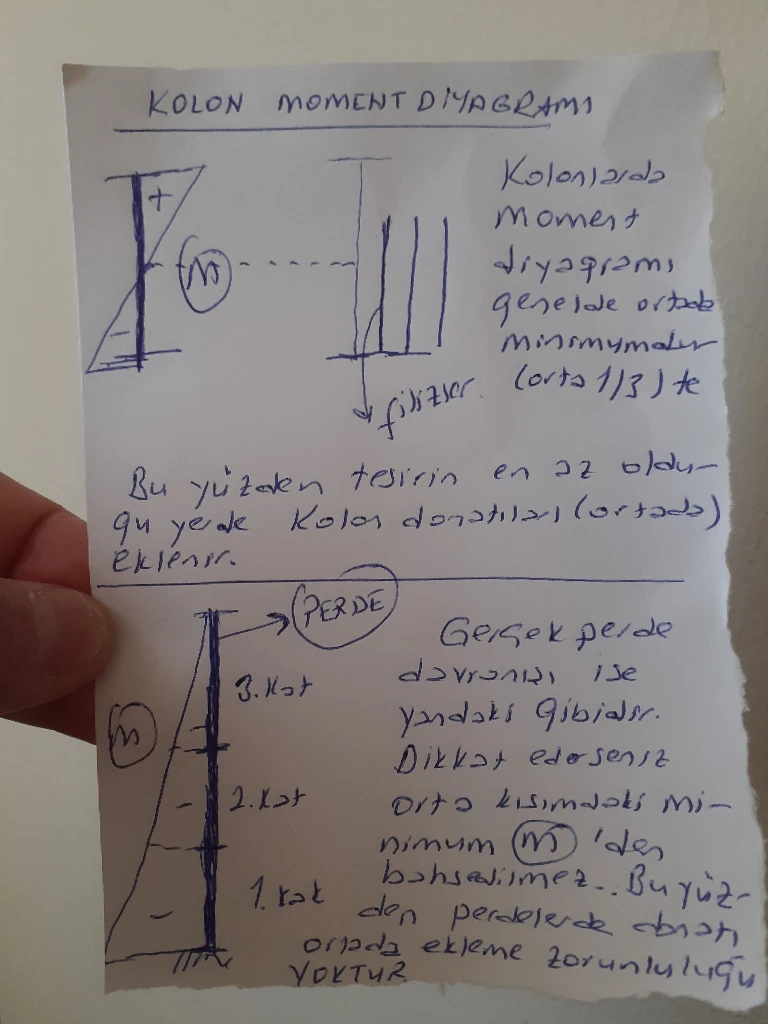 KOLON MOMENT DİYAGRAMI
+
M
-
filizler.
Kolonlarda
moment
diyagramı
genelde ortada
minimumdur
(orta 1/3) te
Bu yüzden tesirin en az oldu-
ğu yerde kolon donatıları (ortada)
eklenir.
PERDE
3. Kat
M
-
2. Kat
-
1. Kat
-
Gerçek perde
davranışı ise
yandaki gibidir.
Dikkat ederseniz
orta kısımdaki mi-
nimum M 'den
bahsedilmez.. Bu yüz-
den perdelerde donatı
ortada ekleme zorunluluğu
YOKTUR